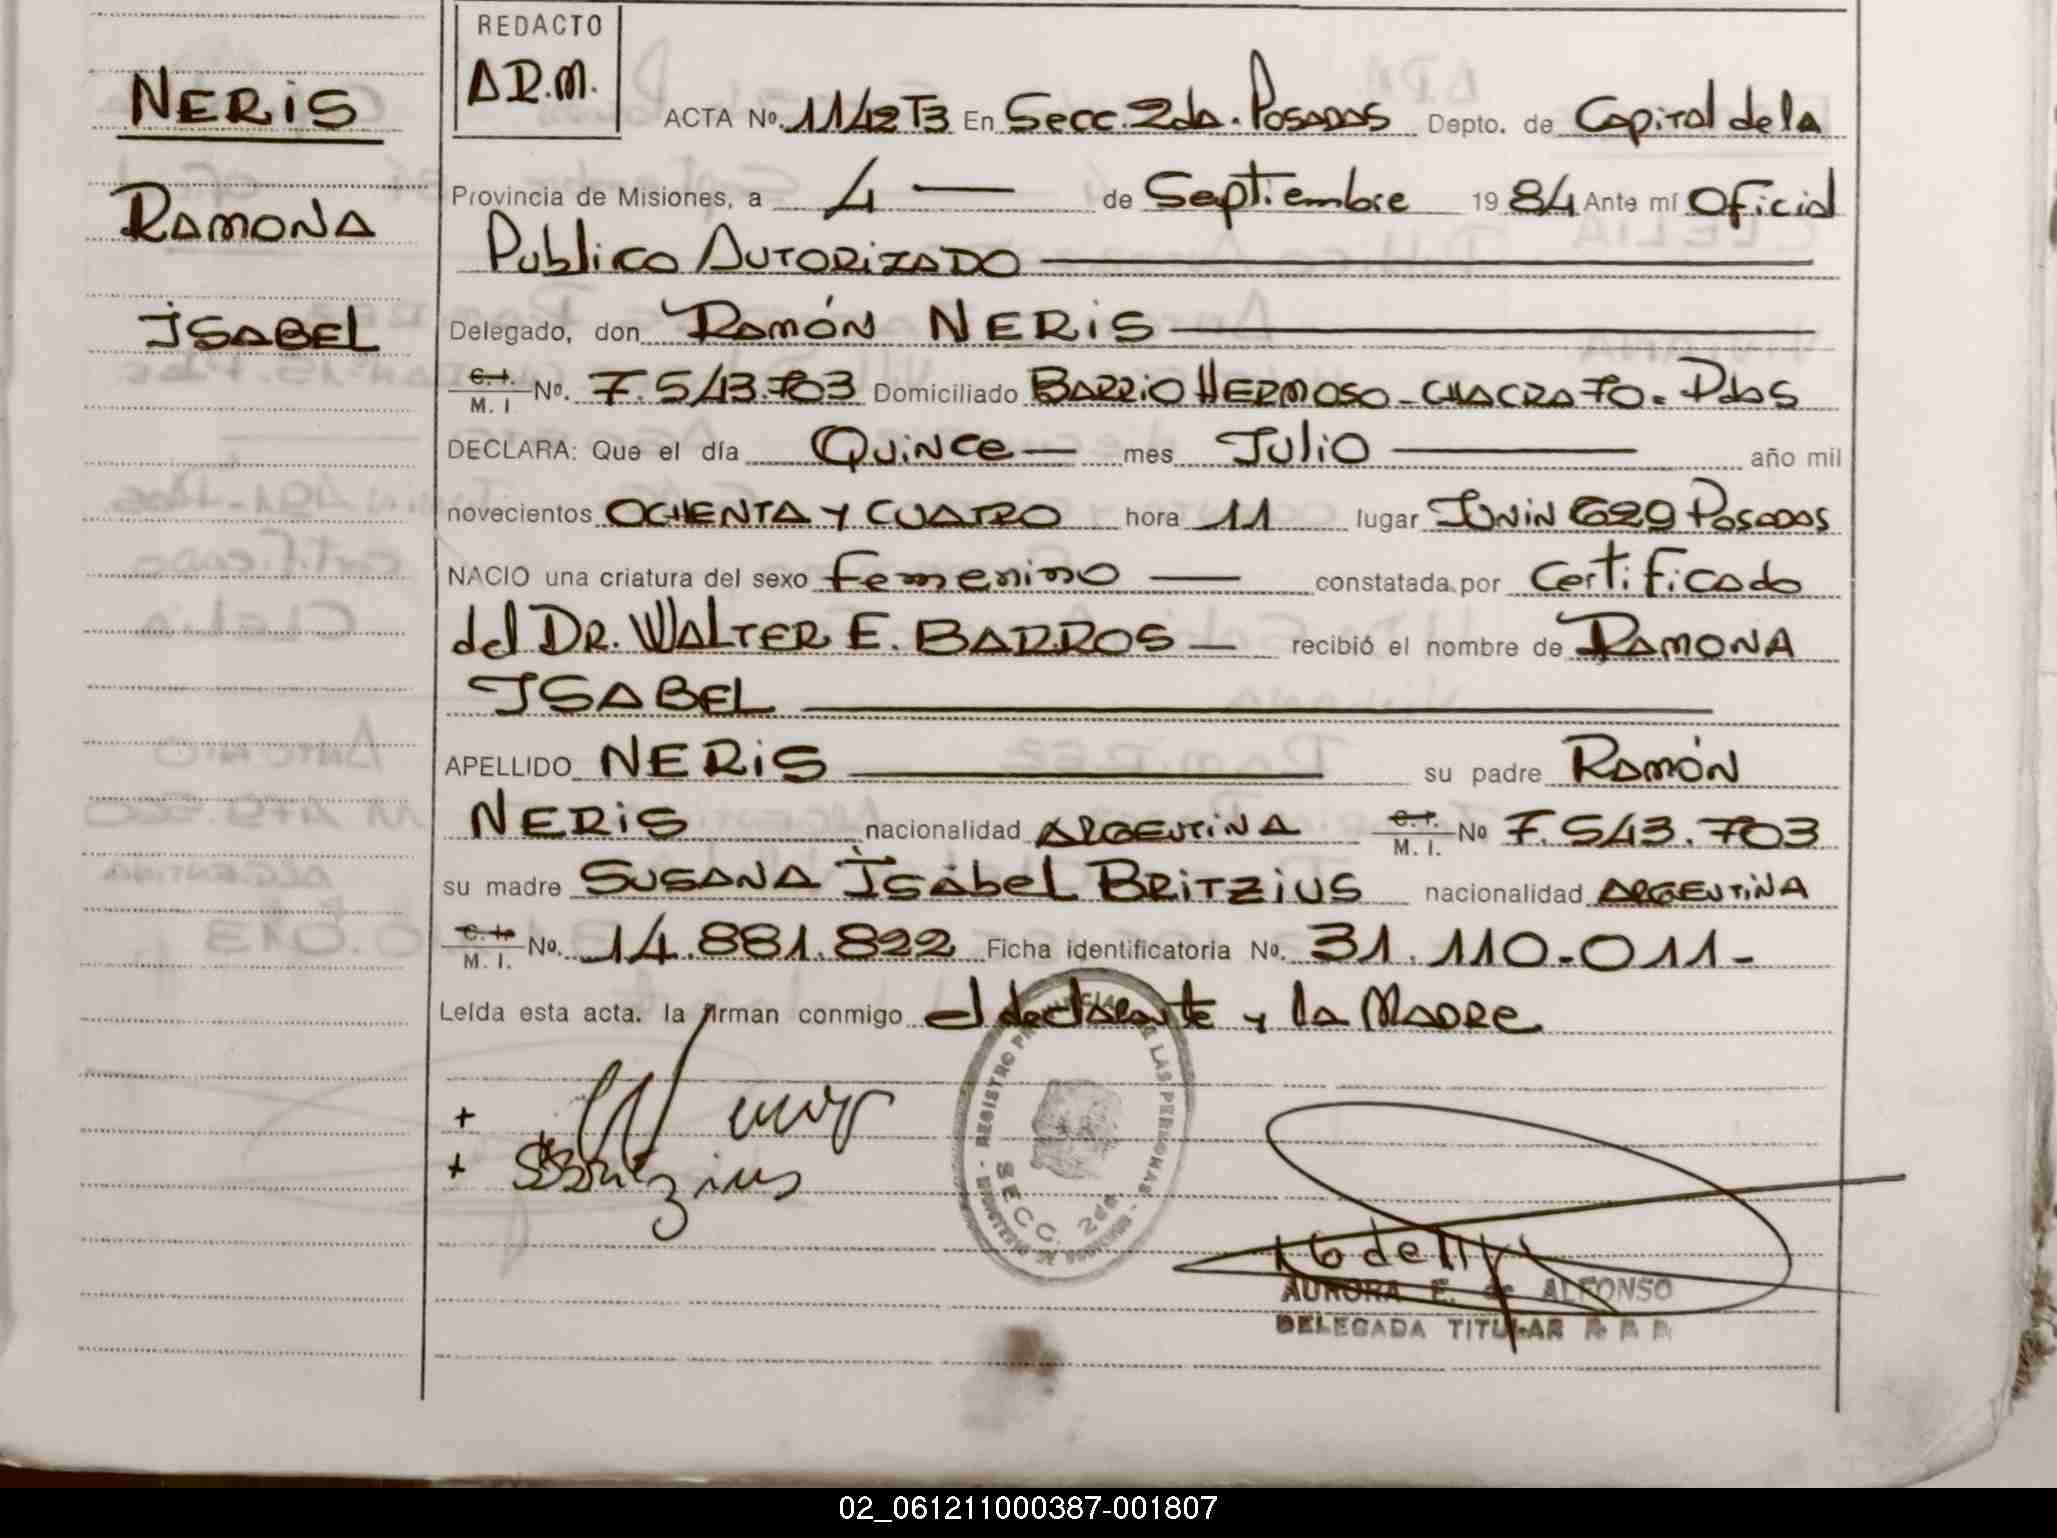 NERIS
RAMONA
ISABEL
REDACTO
A.R.M.
ACTA Nº. 1142 T3 En Secc. 2da. Posadas Depto. de Capital de la
Provincia de Misiones, a 4 — de Septiembre 1984 Ante mí Oficial
Publico Autorizado
Delegado, don Ramón NERIS
C.I. / M. I Nº. 7.543.703 Domiciliado BARRIO HERMOSO - CHACRA 70 - Pdas
DECLARA: Que el día Quince — mes Julio — año mil
novecientos OCHENTA Y CUATRO hora 11 lugar Junin 629 Posadas
NACIO una criatura del sexo femenino — constatada por Certificado
del DR. WALTER E. BARROS — recibió el nombre de RAMONA
ISABEL
APELLIDO NERIS — su padre Ramón
NERIS nacionalidad ARGENTINA C.I. / M. I. Nº 7.543.703
su madre SUSANA Isabel BRITZIUS nacionalidad ARGENTINA
C. I. / M. I. Nº. 14.881.822 Ficha identificatoria Nº. 31.110.011-
Leída esta acta. la firman conmigo el declarante y la Madre
+
+ SBritzius
REGISTRO PROVINCIAL DE LAS PERSONAS - MINISTERIO DE GOBIERNO
SECC. 2da
AURORA E. de ALFONSO
DELEGADA TITULAR R P P
02_061211000387-001807